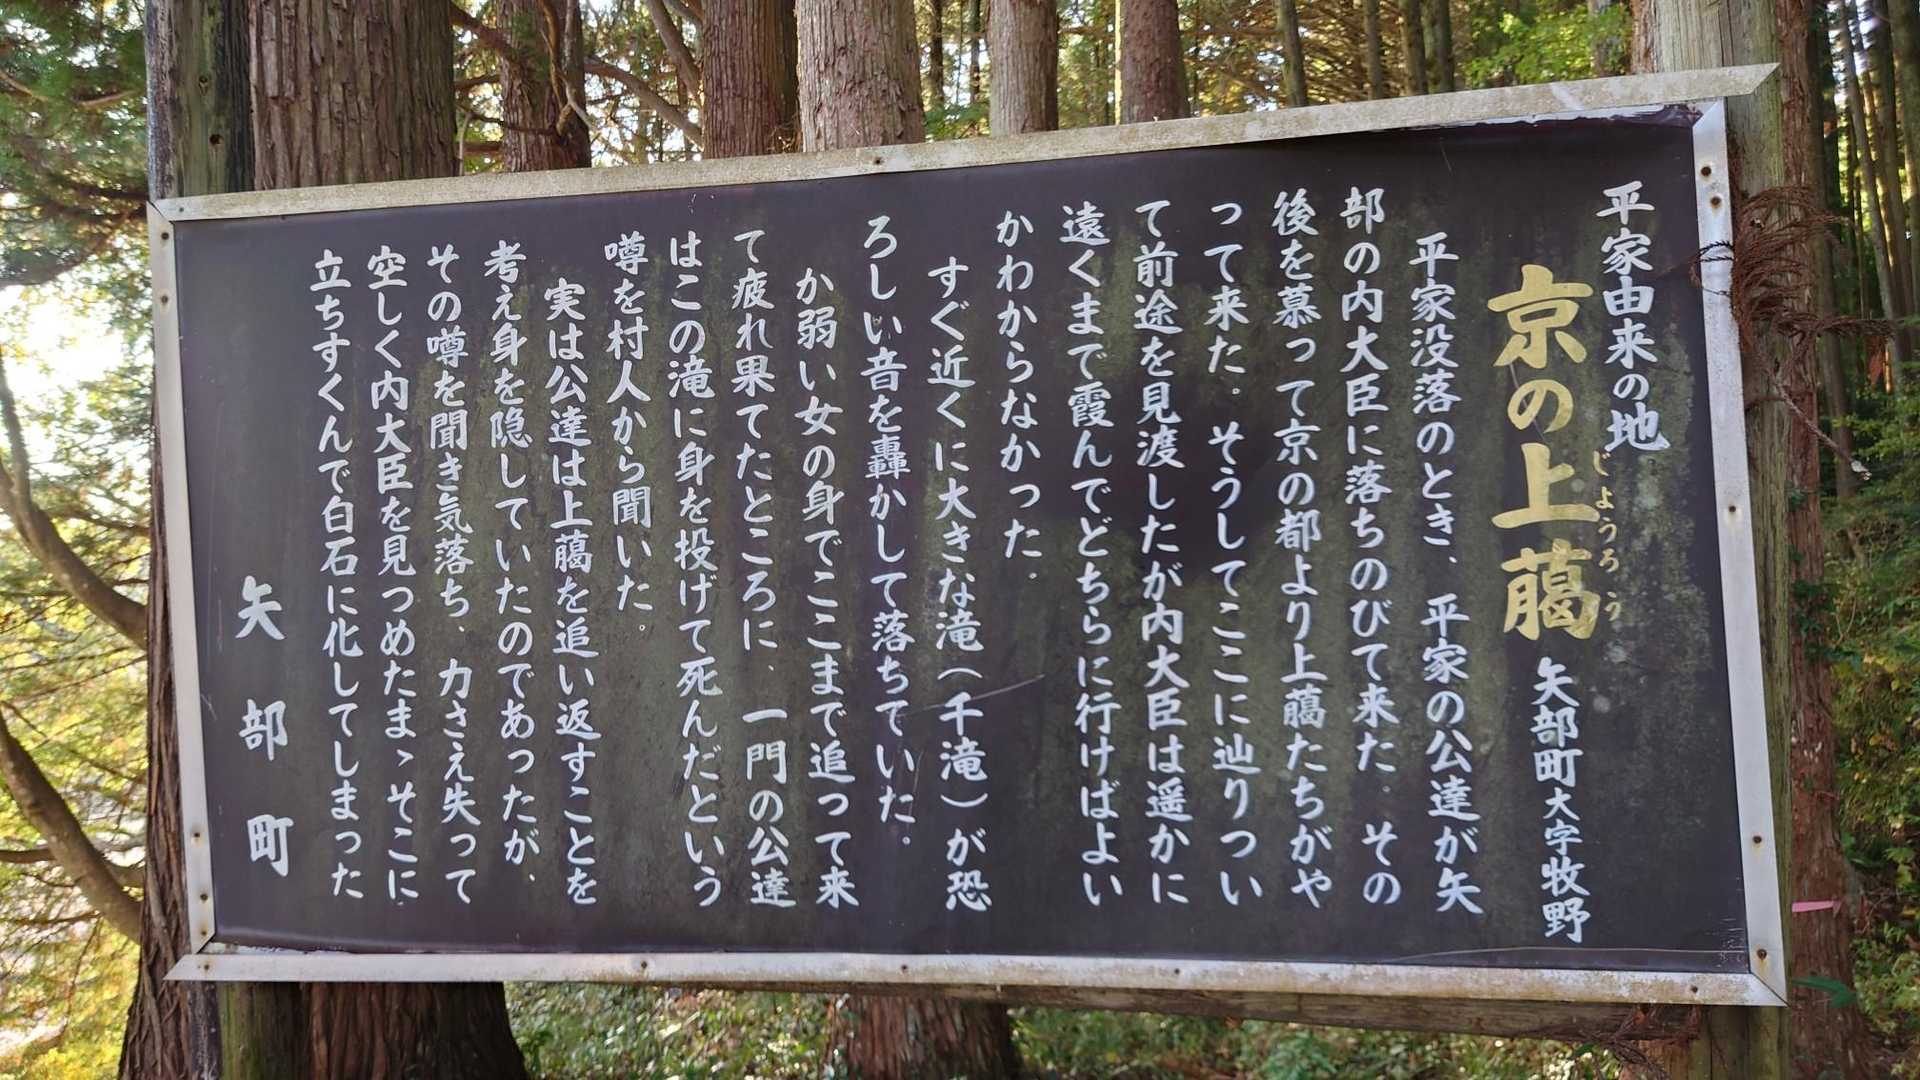 平家由来の地
京の上﨟
じょうろう
矢部町大字牧野
平家没落のとき、平家の公達が矢
部の内大臣に落ちのびて来た。その
後を慕って京の都より上﨟たちがや
って来た。そうしてここに辿りつい
て前途を見渡したが内大臣は遥かに
遠くまで霞んでどちらに行けばよい
かわからなかった。
すぐ近くに大きな滝(千滝)が恐
ろしい音を轟かして落ちていた。
か弱い女の身でここまで追って来
て疲れ果てたところに、一門の公達
はこの滝に身を投げて死んだという
噂を村人から聞いた。
実は公達は上﨟を追い返すことを
考え身を隠していたのであったが、
その噂を聞き気落ち、力さえ失って
空しく内大臣を見つめたまゝそこに
立ちすくんで白石に化してしまった
矢部町